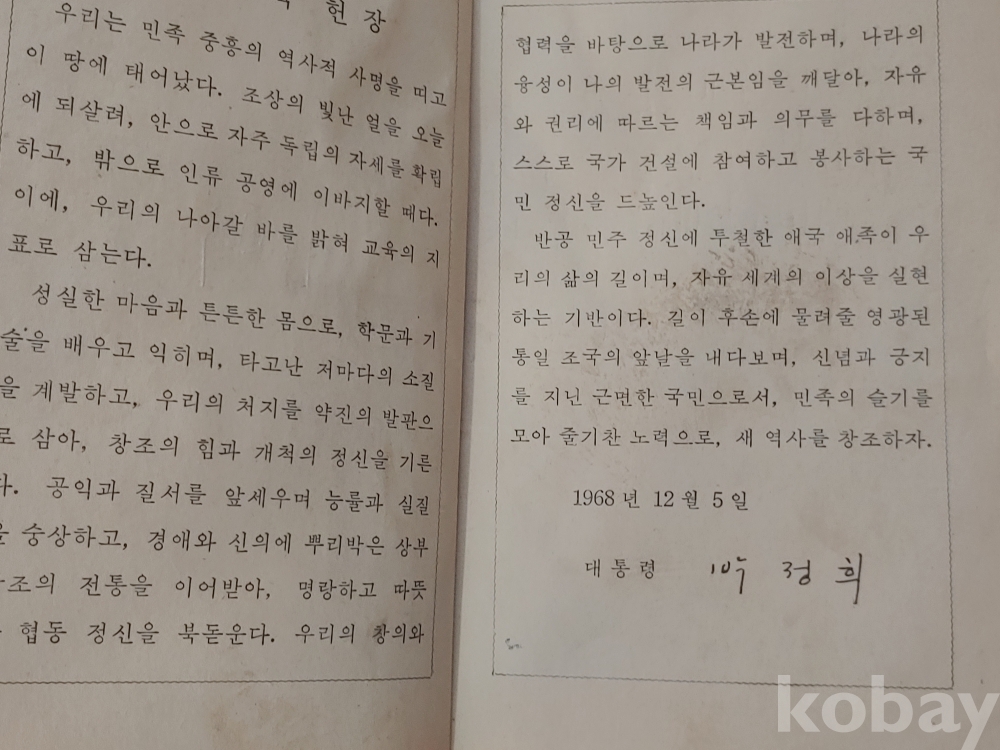 헌 장
우리는 민족 중흥의 역사적 사명을 띠고
이 땅에 태어났다. 조상의 빛난 얼을 오늘
에 되살려, 안으로 자주 독립의 자세를 확립
하고, 밖으로 인류 공영에 이바지할 때다.
이에, 우리의 나아갈 바를 밝혀 교육의 지
표로 삼는다.
성실한 마음과 튼튼한 몸으로, 학문과 기
술을 배우고 익히며, 타고난 저마다의 소질
을 계발하고, 우리의 처지를 약진의 발판으
로 삼아, 창조의 힘과 개척의 정신을 기른
다. 공익과 질서를 앞세우며 능률과 실질
을 숭상하고, 경애와 신의에 뿌리박은 상부
조의 전통을 이어받아, 명랑하고 따뜻
협동 정신을 북돋운다. 우리의 창의와
협력을 바탕으로 나라가 발전하며, 나라의
융성이 나의 발전의 근본임을 깨달아, 자유
와 권리에 따르는 책임과 의무를 다하며,
스스로 국가 건설에 참여하고 봉사하는 국
민 정신을 드높인다.
반공 민주 정신에 투철한 애국 애족이 우
리의 삶의 길이며, 자유 세계의 이상을 실현
하는 기반이다. 길이 후손에 물려줄 영광된
통일 조국의 앞날을 내다보며, 신념과 긍지
를 지닌 근면한 국민으로서, 민족의 슬기를
모아 줄기찬 노력으로, 새 역사를 창조하자.
1968 년 12 월 5 일
대통령 박 정 희
kobay